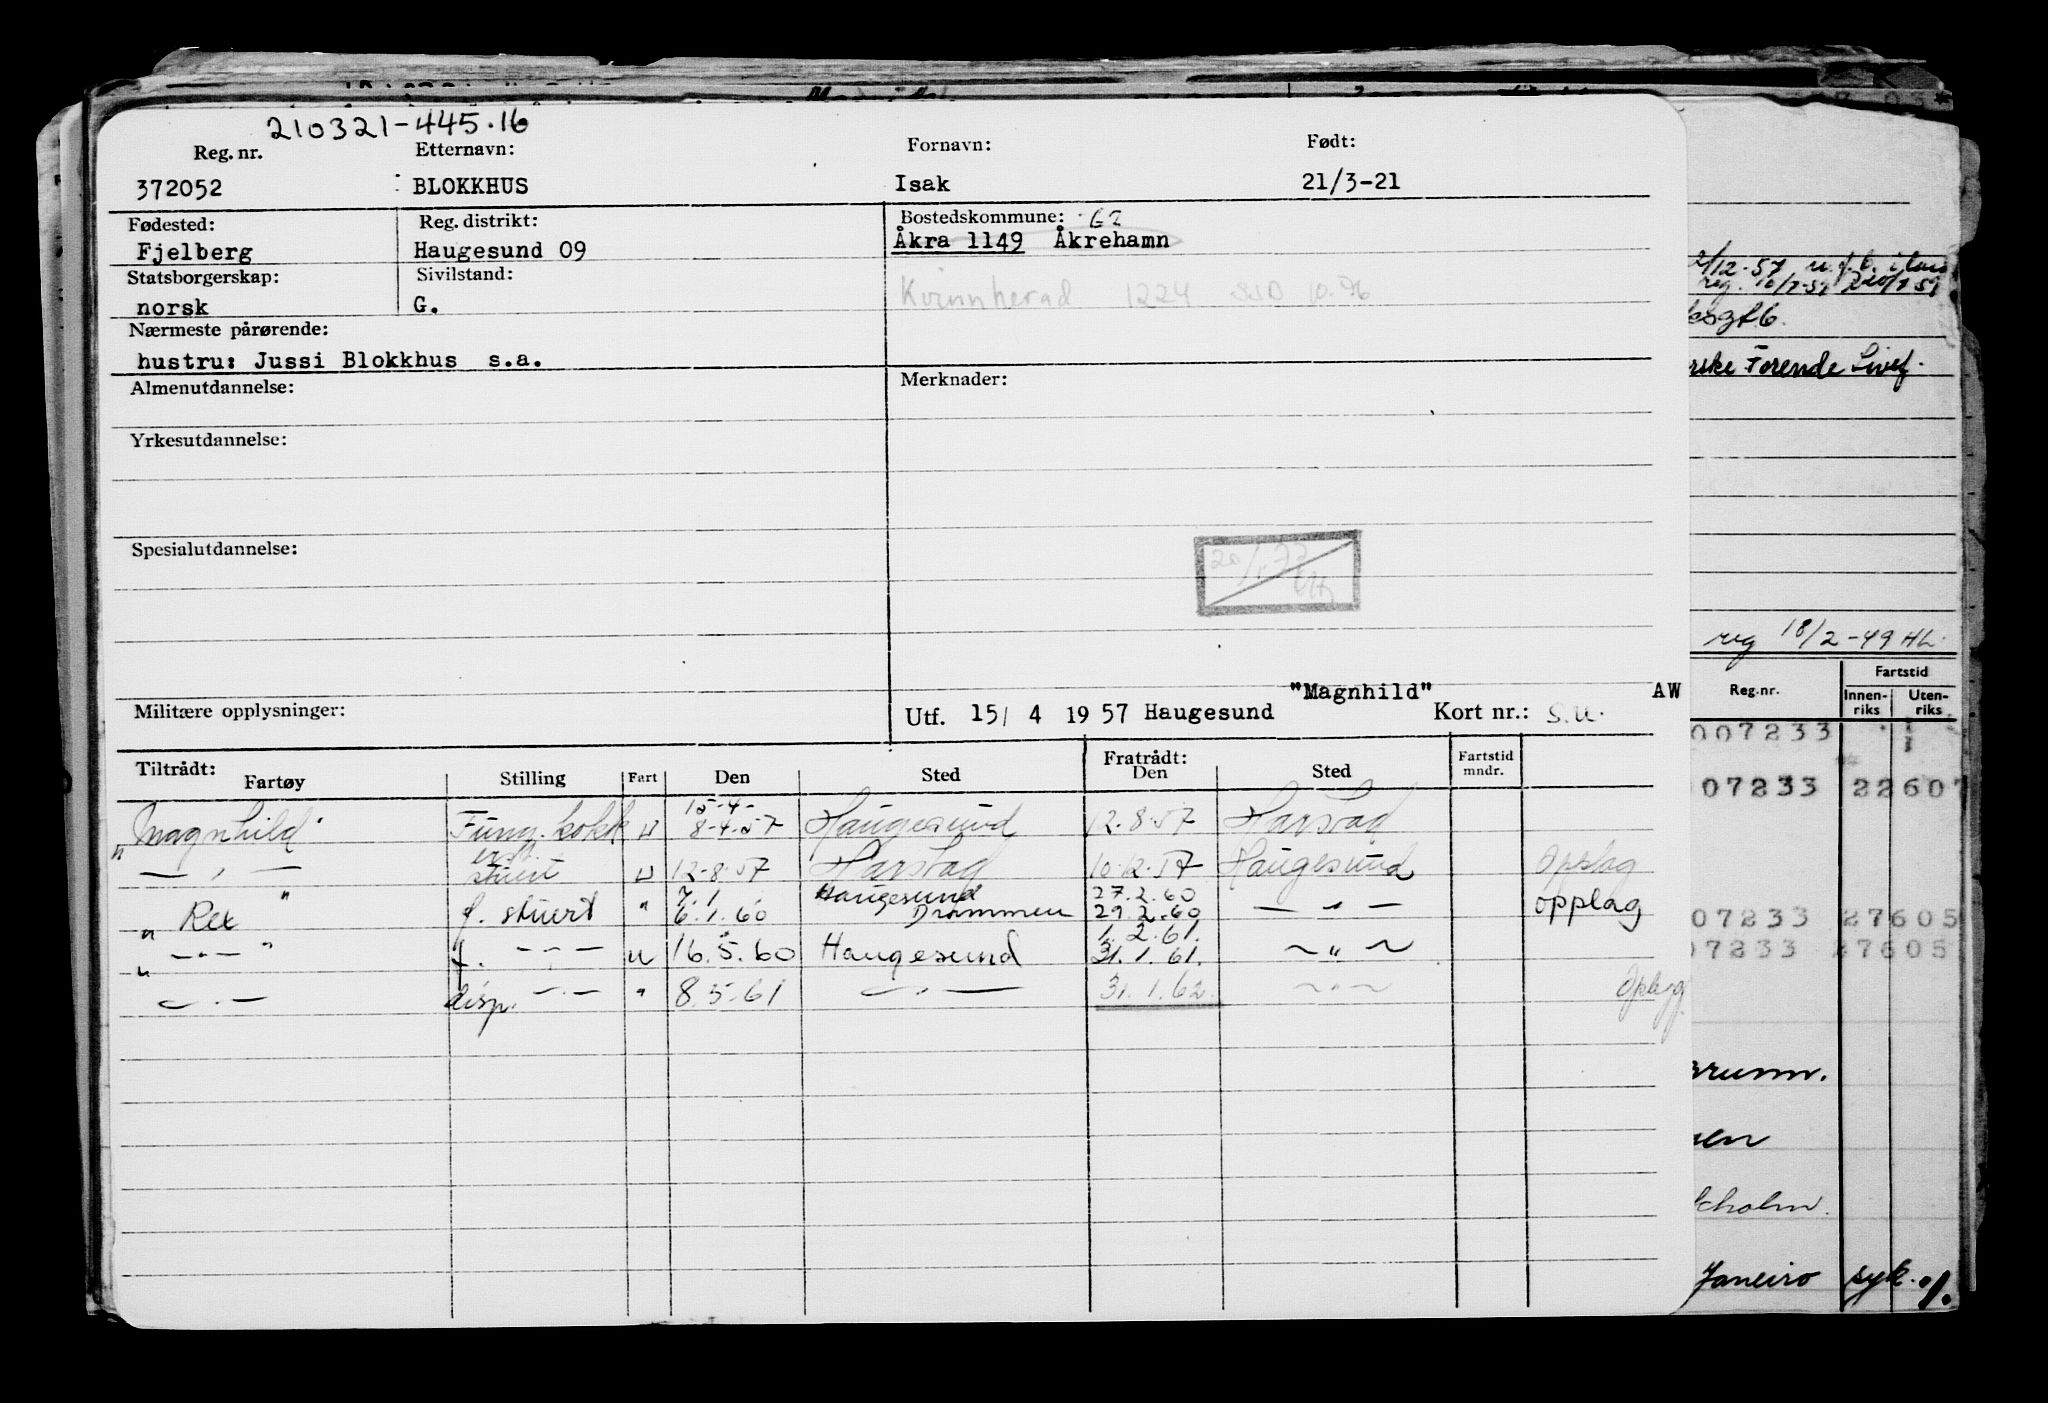 210321-445.16
Reg. nr. Etternavn: Fornavn: Født:
372052 BLOKKHUS Isak 21/3-21
Fødested: Reg. distrikt: Bostedskommune: 62
Fjelberg Haugesund 09 Åkra 1149 Åkrehamn
Statsborgerskap: Sivilstand:
norsk G. Kvinnherad 1224 SSD 10.76
Nærmeste pårørende:
hustru: Jussi Blokkhus s.a.
Almenutdannelse: Merknader:
Yrkesutdannelse:
Spesialutdannelse:
"Magnhild" AW
Militære opplysninger: Utf. 15/ 4 19 57 Haugesund Kort nr.: S.U.
Tiltrådt: Fratrådt: Fartstid
Fartøy Stilling Fart Den Sted Den Sted mndr.
15-4-
"Magnhild" Fung. kokk U 8-4-57 Haugesund 12.8.57 Harstad
— " — stuert U 12-8-57 Harstad 10.12.57 Haugesund Opplag
7.1 Haugesund 27.2.60
"Rex" f. stuert " 6.1.60 Drammen 29.2.60 — " — opplag
1.2.61.
" — " — " f. — " — u 16.5.60 Haugesund 31.1.61. — " —
— " — disp. — " — " 8.5.61 — " — 31.1.62. — " — Opplag
2/12-57 u.f.b. i
reg.
rske Forende Livsf.
reg 18/2-49 HL.
Fartstid
Reg.nr. Innen-riks Uten-riks
007233
07233 22607
07233 27605
07233 27605
runn.
en
kholm.
Janeiro syk.